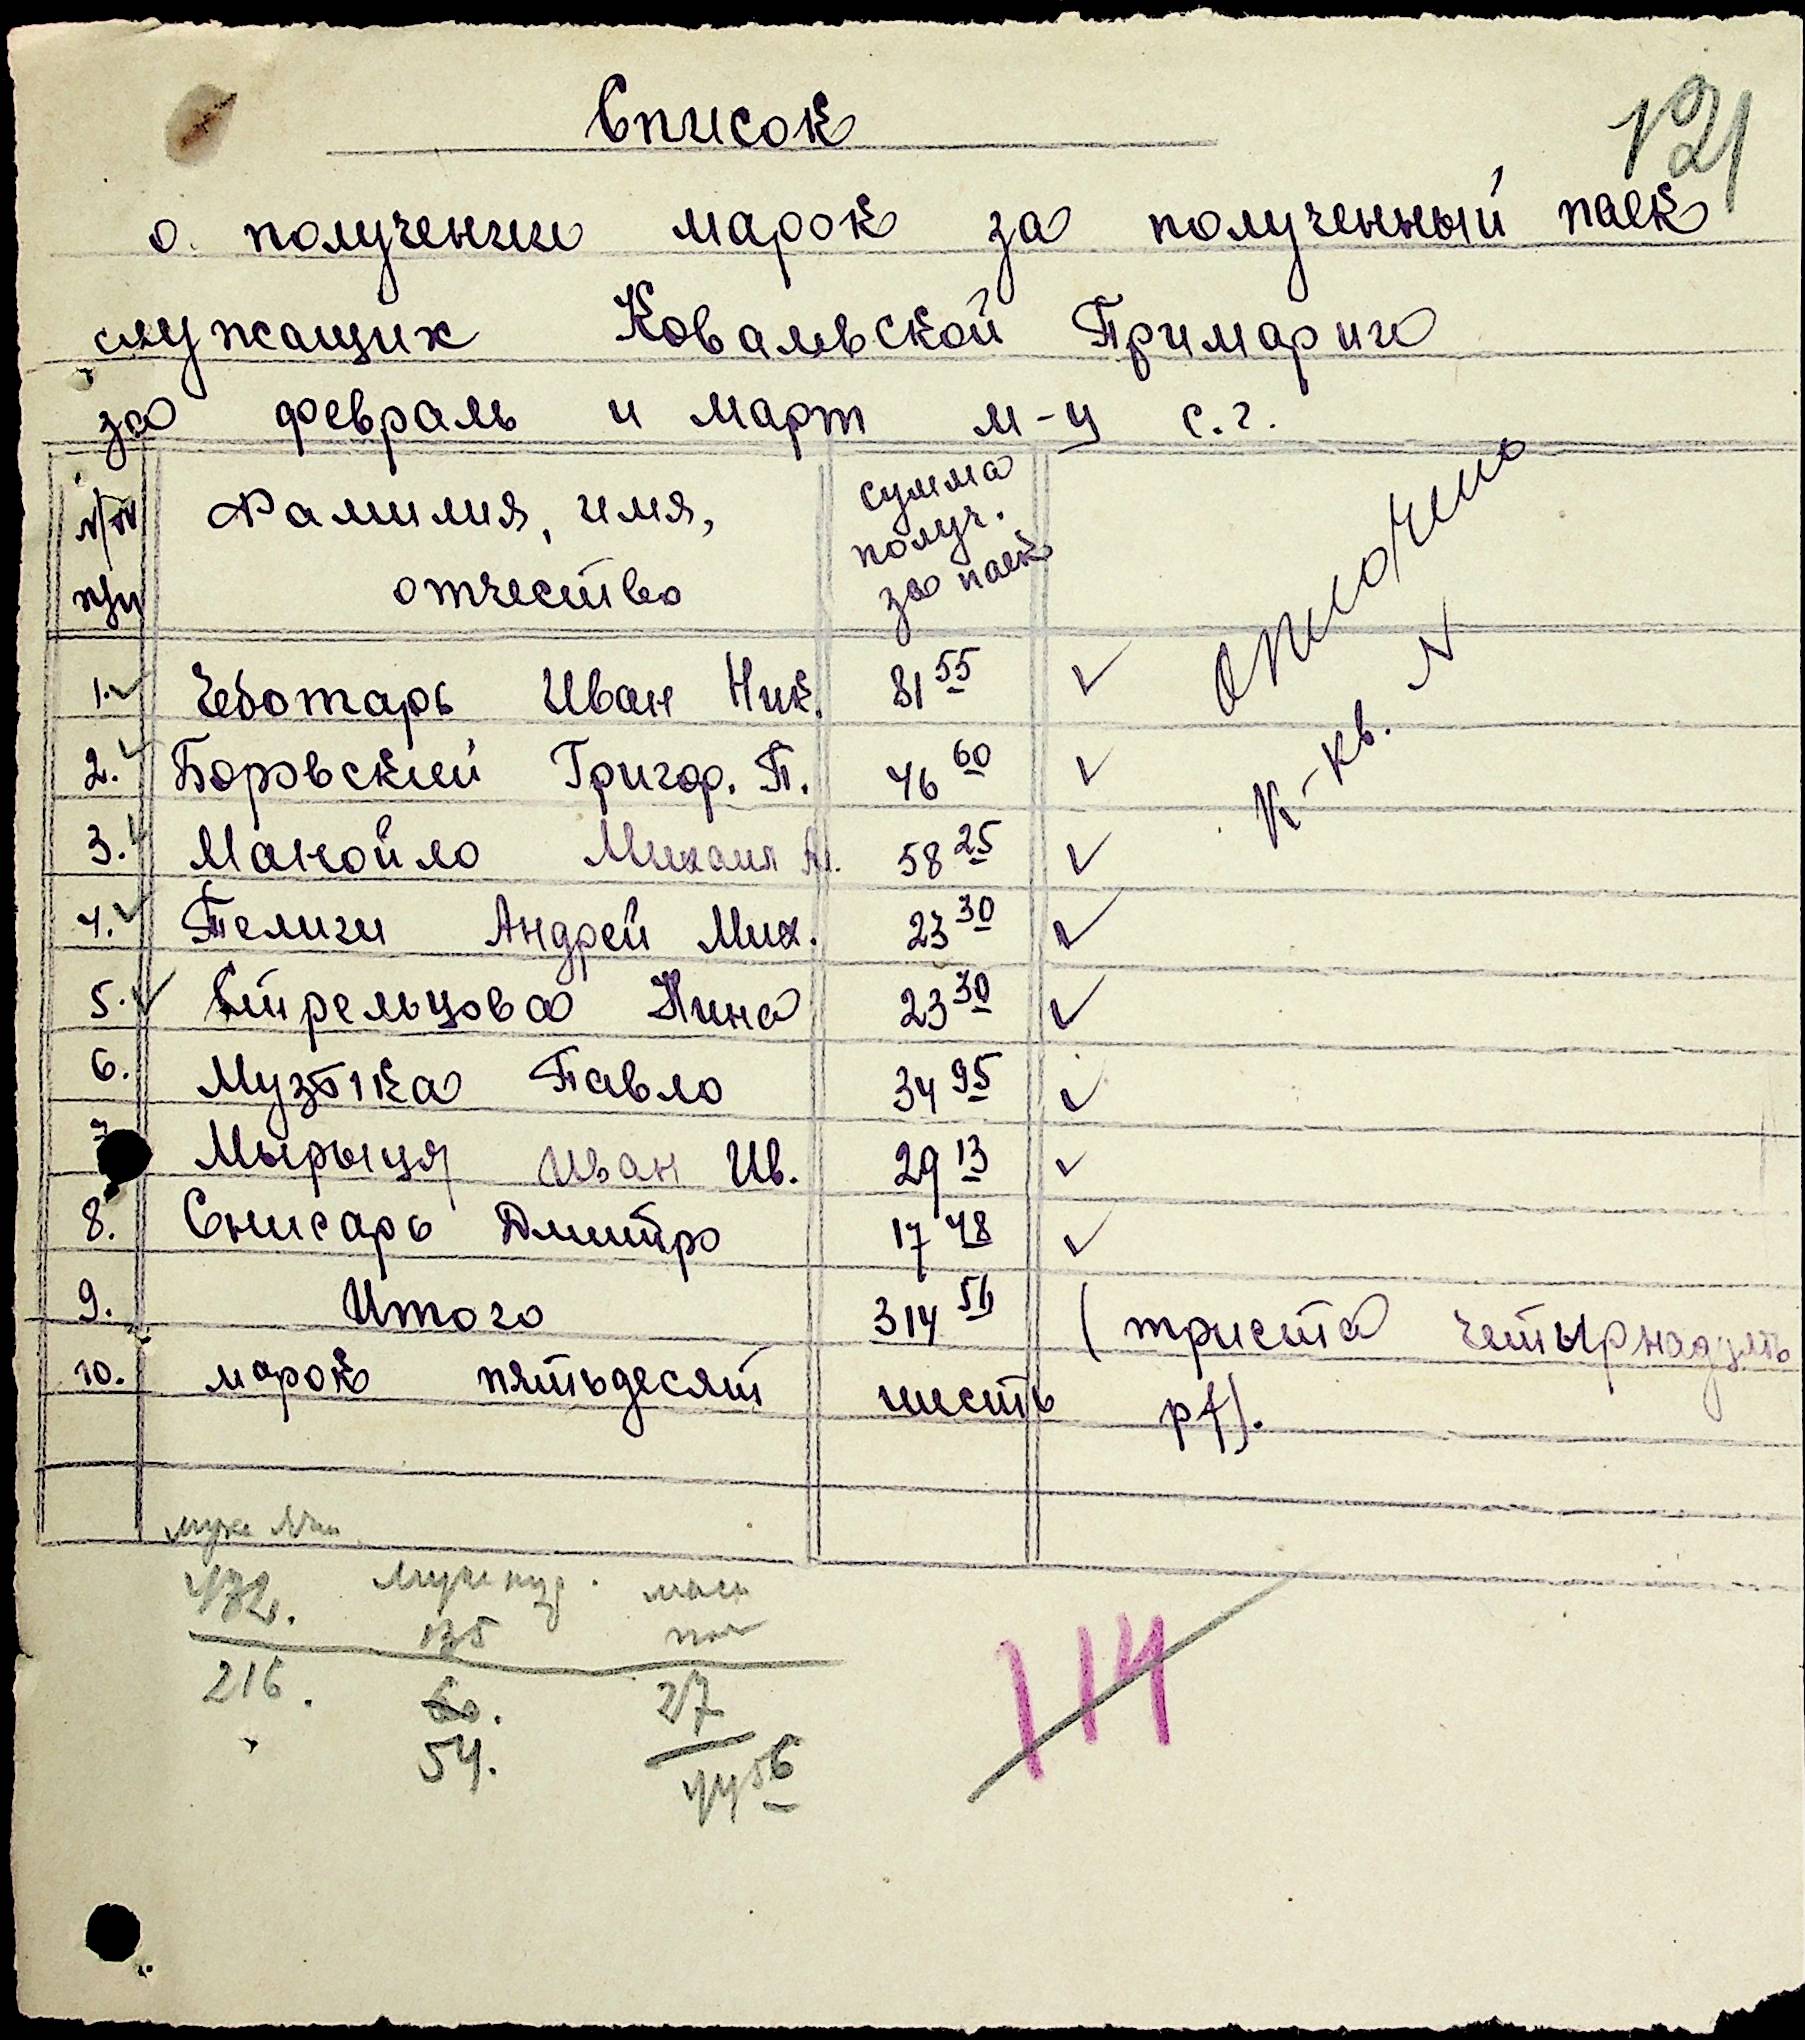 Список
121
о получении марок за полученный паек
служащих Ковалевской Примарии
за февраль и март м-ц с.г.
N/N п/п
Фамилия, имя, отчество
сумма получ. за паек
оплочено
К-кв. N
1. Чеботарь Иван Ник. 81 55
2. Боровский Григор. П. 46 60
3. Манойло Михаил 58 25
4. Пелиги Андрей Мих. 23 30
5. Стрельцова Нина 23 30
6. Музыка Павло 34 95
7. Мырыця Иван Ив. 29 13
8. Снисарь Дмитро 17 48
9. Итого 314 56 (триста четырнадцать
10. марок пятьдесят шесть рф).
432. 135
216. 60. 27
54. 44 56
114